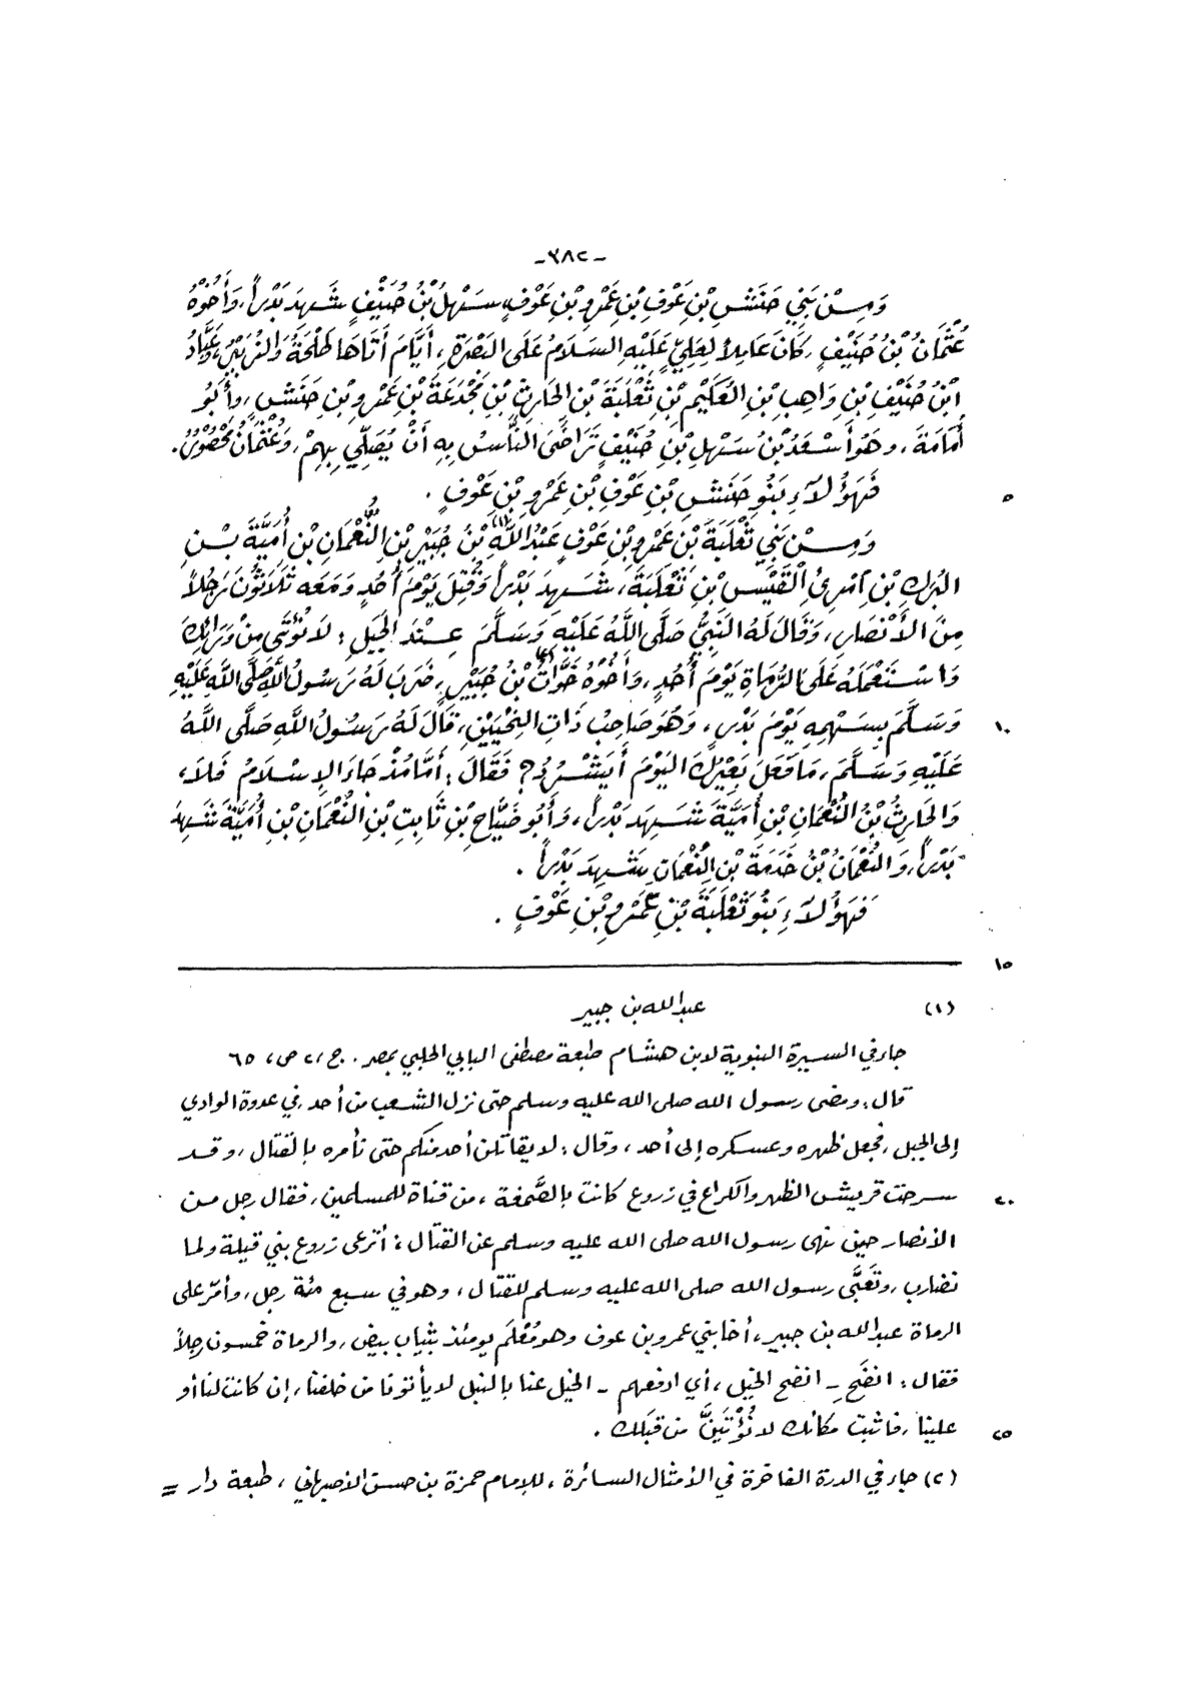 -٣٨٢-
وَمِنْ بَنِي حَنَشِ بْنِ عَوْفِ بْنِ عَمْرِو بْنِ عَوْفٍ سَهْلُ بْنُ حُنَيْفٍ شَهِدَ بَدْراً، وَأَخُوهُ
عُثْمَانُ بْنُ حُنَيْفٍ، كَانَ عَامِلاً لِعَلِيٍّ عَلَيْهِ السَلَامُ عَلَى البَصْرَةِ، أَيَّامَ أَتَاهَا طَلْحَةُ وَالزُبَيْرُ، وَعَبَّادُ
ابْنُ حُنَيْفِ بْنِ وَاهِبِ بْنِ العُكَيْمِ بْنِ ثَعْلَبَةَ بْنِ الحَارِثِ بْنِ مَجْدَعَةَ بْنِ عَمْرِو بْنِ حَنَشٍ، وأَبُو
أُمَامَةَ، وهَوُ أَسْعَدُ بْنُ سَهْلِ بْنِ حُنَيْفٍ تَرَاضَى النَّاسُ بِهِ أَنْ يُصَلِّي بِهِمْ، وَعُثْمَانُ مَحْصُورٌ.
فَهَؤُلَآءِ بَنُو حَنَشِ بْنِ عَوْفِ بْنِ عَمْرِو بْنِ عَوْفٍ .
٥
وَمِنْ بَنِي ثَعْلَبَةَ بْنَ عَمْرِو بْنِ عَوْفٍ عَبْدُ اللَّهِ (١) بْنُ جُبَيْرِ بْنِ النُّعْمَانِ بْنِ أُمَيَّةَ بْنِ
البُرَكِ بْنِ امْرِئِ القَيْسِ بْنِ ثَعْلَبَةَ، شَهِدَ بَدْراً وَقُتِلَ يَوْمَ أُحُدٍ وَمَعَه ثَلَاثُونَ رَجُلاً
مِنَ الأَنْصَارِ، وَقَالَ لَهُ النَبِيُّ صَلَّى اللَّهُ عَلَيْهِ وَسَلَّمَ عِنْدَ الجَبَلِ: لَا نُؤْتَى مِنْ وَرَائِكَ
وَاسْتَعْمَلَهُ عَلَى الرُمَاةِ يَوْمَ أُحُدٍ، وَأَخُوهُ خَوَّاتُ (٢) بْنُ جُبَيْرٍ، ضَرَبَ لَهُ رَسُولُ اللَّهِ صَلَّى اللَّهُ عَلَيْهِ
وَسَلَّمَ بِسَهْمِهِ يَوْمَ بَدْرٍ، وَهَوَ صَاحِبُ ذَاتِ النِحْيَيْنِ، قَالَ لَهُ رَسُولُ اللَّهِ صَلَّى اللَّهُ
١٠
عَلَيْهِ وَسَلَّمَ، مَا فَعَلَ بَعِيْرُكَ اليَوْمَ أَيَشْرُدُ؟ فَقَالَ: أَمَّا مُنْذُ جَاءَ الإِسْلَامُ فَلَا،
وَالحَارِثُ بْنُ النُعْمَانِ بْنِ أُمَيَّةَ شَهِدَ بَدْراً، وَأَبُو ضَيَّاحِ بْنِ ثَابِتِ بْنِ النُعْمَانِ بْنِ أُمَيَّةَ شَهِدَ
بَدْراً، وَالنُعْمَانُ بْنُ خَدَمَةَ بْنِ النُعْمَانِ شَهِدَ بَدْراً .
فَهَؤُلَآءِ بَنُو ثَعْلَبَةَ بْنِ عَمْرِو بْنِ عَوْفٍ .
١٥
(١) عبد الله بن جبير
جاء في السيرة النبوية لابن هشام طبعة مصطفى البابي الحلبي بمصر. ج/٢ ص، ٦٥
قال: ومضى رسول الله صلى الله عليه وسلم حتى نزل الشعب من أحد، في عدوة الوادي
إلى الجبل، فجعل ظهره وعسكره إلى أحد، وقال: لا يقاتلن أحد منكم حتى نأمره بالقتال، وقد
سرحت قريش الظهر والكراع في زروع كانت بالصَّمغة، من قناة للمسلمين، فقال رجل من
٢٠
الأنصار حين نهى رسول الله صلى الله عليه وسلم عن القتال: أترعى زروع بني قيلة ولما
نضارب، وتَعَبَّى رسول الله صلى الله عليه وسلم للقتال، وهو في سبع مئة رجل، وأمّر على
الرماة عبد الله بن جبير، أخا بني عمرو بن عوف وهو مُعْلَم يومئذ بثياب بيض، والرماة خمسون رجلاً
فقال: انضَحِ - انضح الخيل، أي ادفعهم - الخيل عنا بالنبل لا يأتونا من خلفنا، إن كانت لنا أو
علينا، فاثبت مكانك لا نُؤْتَيَنَّ من قبلك .
٢٥
(٢) جاء في الدرة الفاخرة في الأمثال السائرة، للإمام حمزة بن حسن الأصبهاني، طبعة دار =